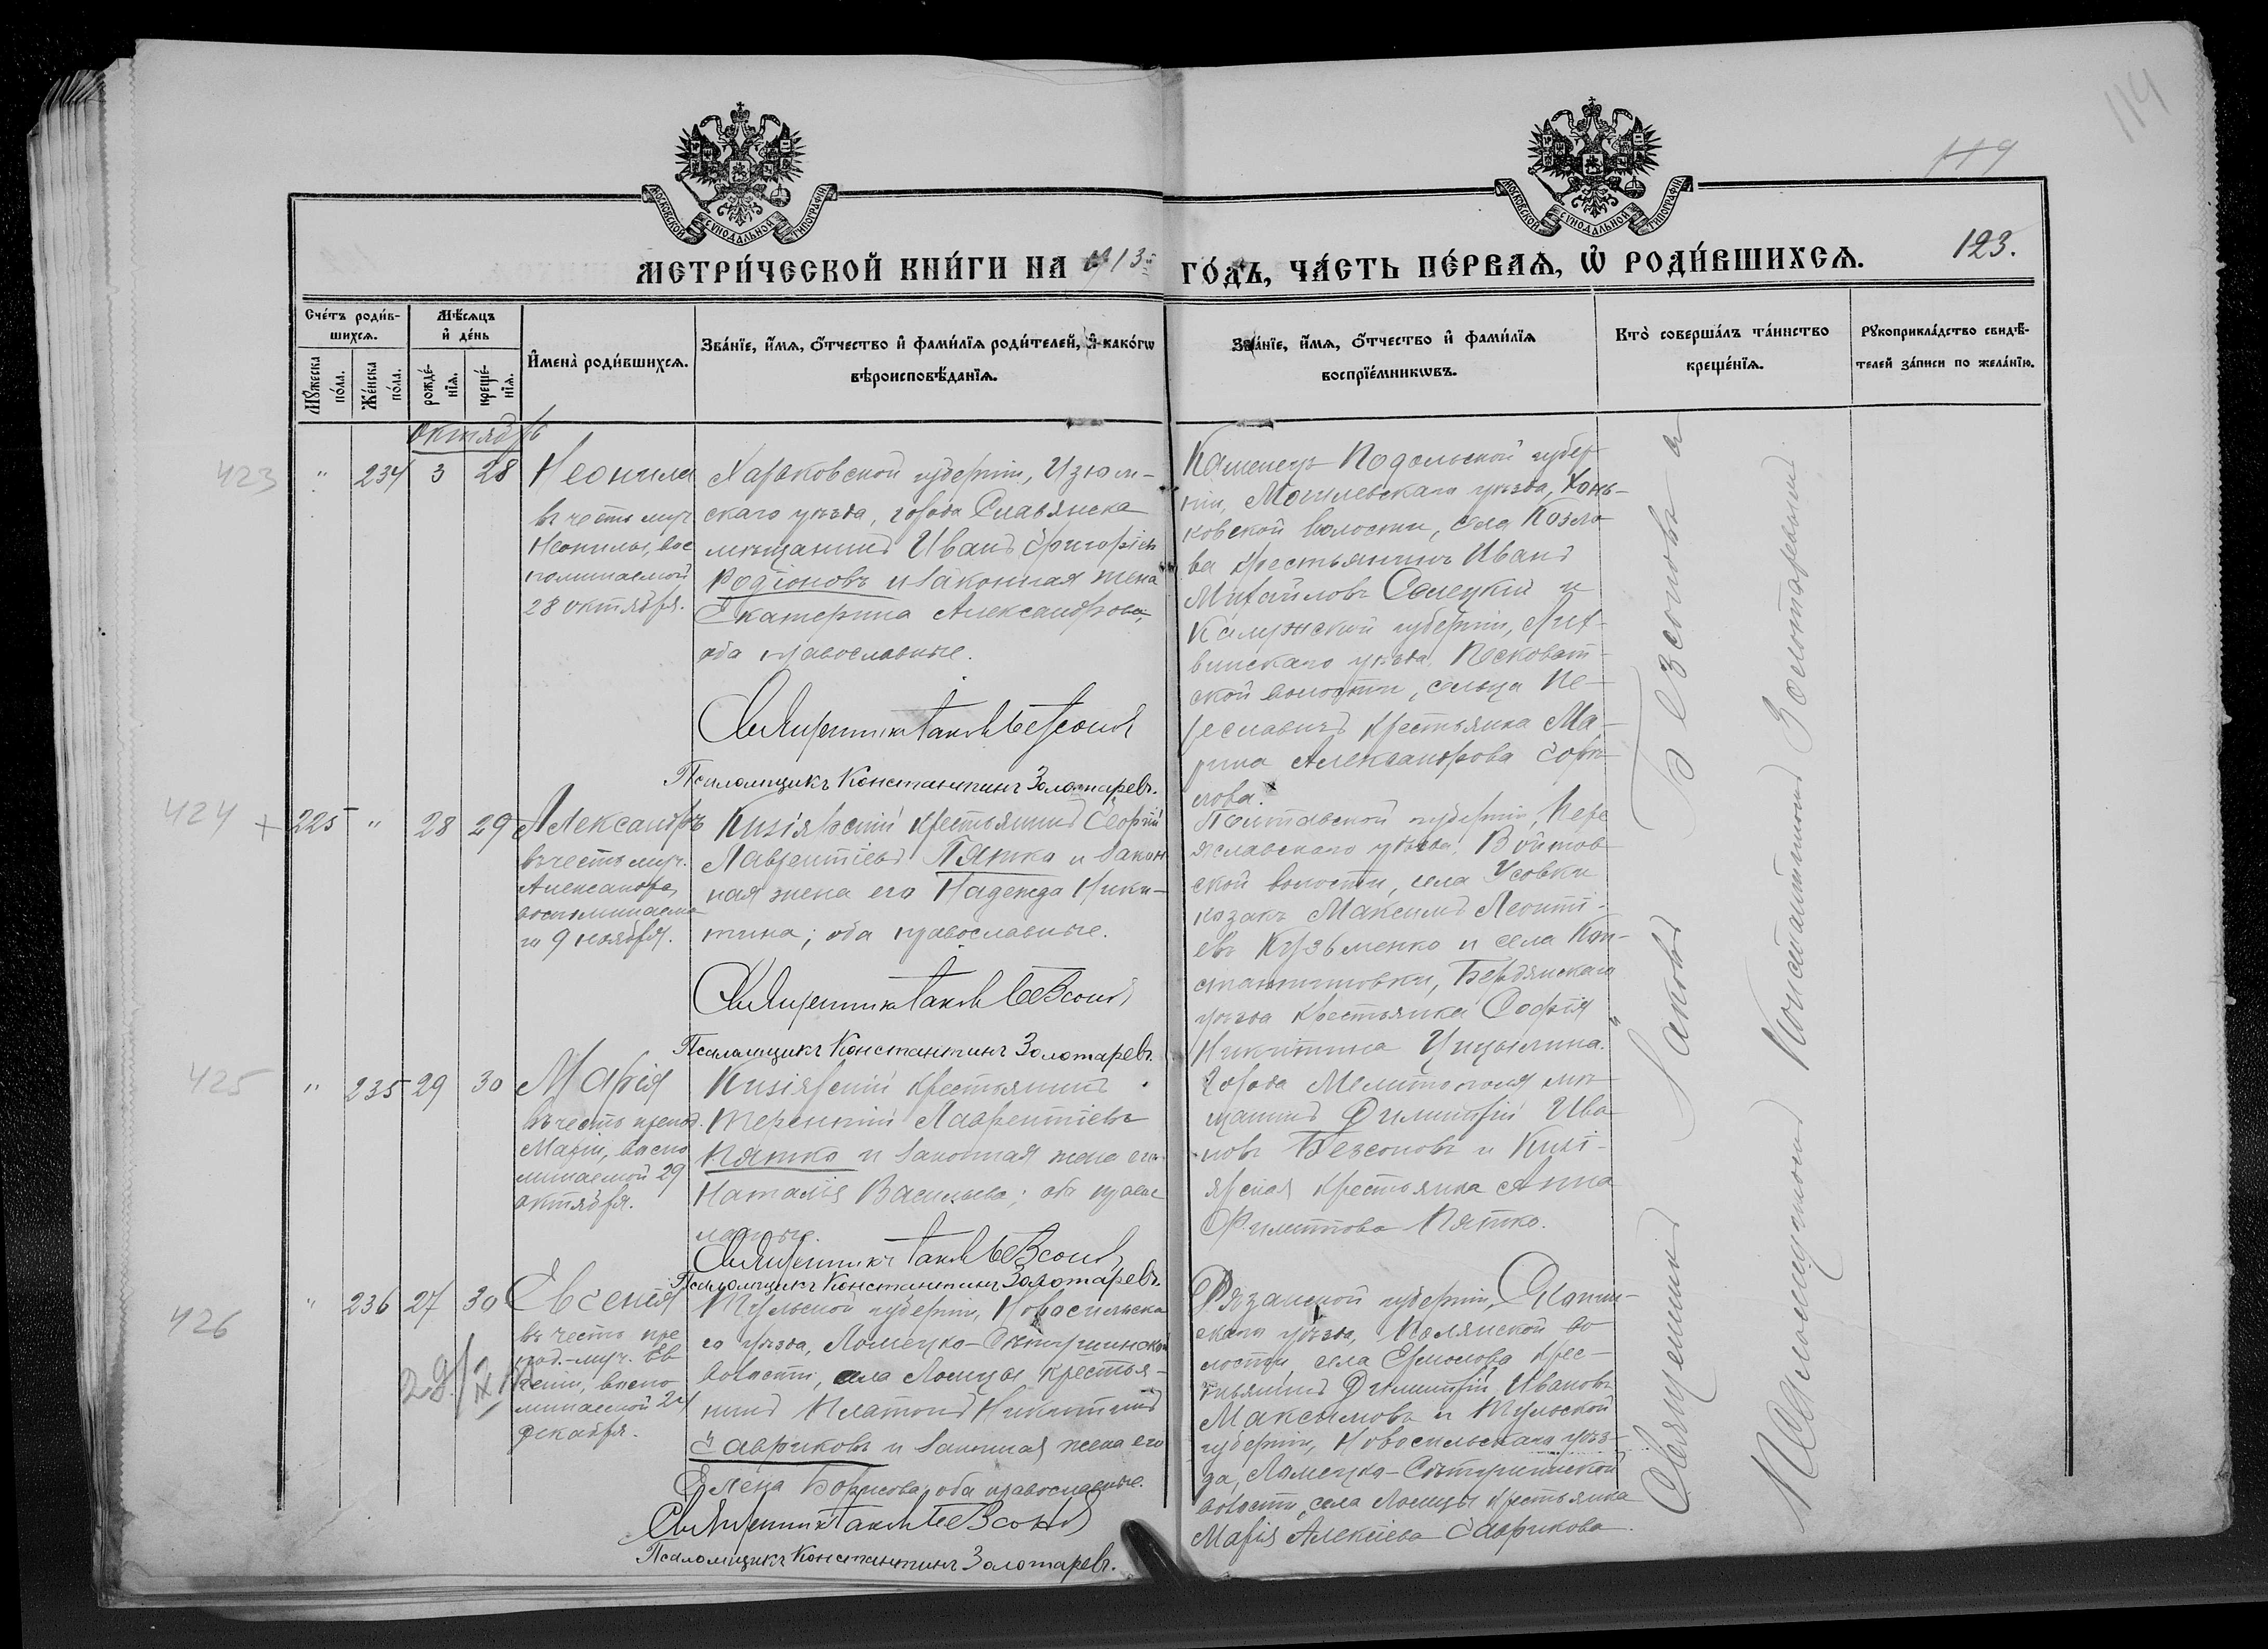 114
119
МОСКОВСКОЙ СѴНОДАЛЬНОЙ ТИПОГРАФІИ
МОСКОВСКОЙ СѴНОДАЛЬНОЙ ТИПОГРАФІИ
МЕТРИ́ЧЕСКОЙ КНИ́ГИ НА 1913 ГО́ДЪ, ЧА́СТЬ ПЕ́РВАѦ, Ѡ҆ РОДИ́ВШИХСѦ.
123.
Сче́тъ роди́в-
шихсѧ.
Мꙋжеска
по́ла.
Же́нска
по́ла.
Мѣ́сѧцъ
и҆ де́нь
рожде́-
нїѧ.
креще́-
нїѧ.
И҆мена̀ роди́вшихсѧ.
Зва́нїе, и҆́мѧ, ѻ҆́тчество и҆ фами́лїѧ роди́телей, и҆ како́гѡ
вѣроисповѣ́данїѧ.
Зва́нїе, и҆́мѧ, ѻ҆́тчество и҆ фами́лїѧ
воспрїе́мникѡвъ.
Кто̀ соверша́лъ та́инство
креще́нїѧ.
Рꙋкоприкла́дство свидѣ́-
телей за́писи по жела́нїю.
Октябрь
423
"
234
3
28
Неонила
въ честь муч.
Неонилы, вос
поминаемой
28 октября.
Харьковской губерніи, Изюм-
скаго уѣзда, города Славянска
мѣщанинъ Иванъ Григоріев
Родіоновъ и законная жена
Екатерина Александрова,
оба православные.
Священникъ Іаковъ Безсоновъ
Псаломщикъ Константинъ Золотаревъ.
Каменецъ Подольской губер-
ніи, Могилевскаго уѣзда, Хонь-
ковской волости, села Козло-
ва крестьянинъ Иванъ
Михайловъ Селецкій и
Калужской губерніи, Лих-
винскаго уѣзда, Песковат-
ской волости, сельца Пе-
реславичъ крестьянка Ма-
рина Александрова
424
+
225
"
28
29
Александръ
въ честь муч.
Александра,
воспоминаема
го 9 ноября.
Кизіярскій крестьянинъ Георгій
Лаврентіевъ Пятка и закон
ная жена его Надежда Ники-
тина; оба православные.
Священникъ Іаковъ Безсоновъ
Псаломщикъ Константинъ Золотаревъ.
Полтавской губерніи, Пере
яславскаго уѣзда, Войтов-
ской волости, села Усовки
козакъ Максимъ Леонті-
евъ Кузьменко и села Кон-
стантиновки, Бердянскаго
уѣзда крестьянка Софія
Никитина
425
"
235
29
30
Марія
въ честь препод.
Маріи, воспо
минаемой 29
октября.
Кизіярскій крестьянинъ
Терентій Лаврентіевъ
Пятка и законная жена его
Наталія Васильева; оба правос
лавные.
Священникъ Іаковъ Безсоновъ
Псаломщикъ Константинъ Золотаревъ.
Города Мелитополя мѣ-
щанинъ Димитрій Ива-
новъ Безсоновъ и Кизі-
ярская крестьянка Анна
Филиппова Пятка.
426
"
236
27
30
Евгенія
въ честь пре
под.-муч. Ев
геніи, воспо
минаемой 24
декабря.
Тульской губерніи, Новосильска
го уѣзда, Ломецко-Скатуринской
волости, села Ломцы крестья-
нинъ Платонъ Никитинъ
Гавриковъ и законная жена его
Елена Борисова; оба православные.
Священникъ Іаковъ Безсоновъ
Псаломщикъ Константинъ Золотаревъ.
Рязанской губерніи, Скопин-
скаго уѣзда, Полянской во
лости, села Ермолова крес-
тьянинъ Димитрій Ивановъ
Максимовъ и Тульской
губерніи, Новосильскаго уѣз-
да, Ломецко-Скатуринской
волости, села Ломцы крестьянка
Марія Алексіева Гаврикова.
Священникъ Іаковъ Безсоновъ и
Псаломщикъ Константинъ Золотаревъ